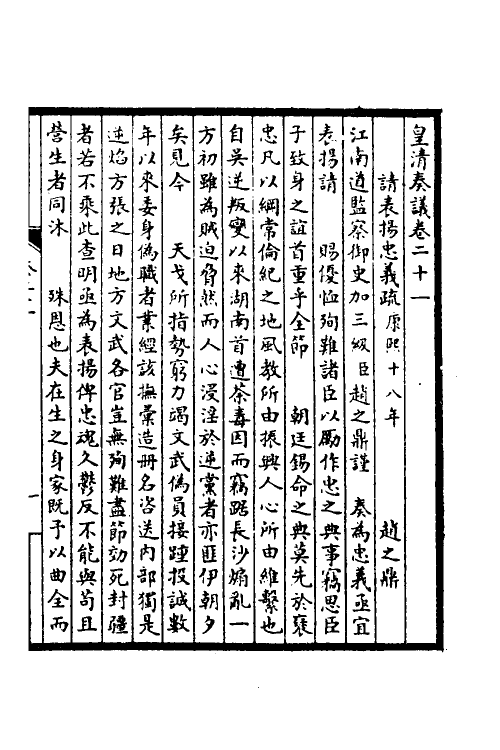 皇清奏議卷二十一
請表揚忠義疏康熙十八年　趙之鼎
江南道監察御史加三級臣趙之鼎謹　奏為忠義亟宜
表揚請　賜優恤殉難諸臣以勵作忠之典事竊思臣
子致身之誼首重乎全節　朝廷錫命之典莫先於襃
忠凡以綱常倫紀之地風教所由振興人心所由維繫也
自吳逆叛變以來湖南首遭荼毒因而竊踞長沙煽亂一
方初雖為賊迫脅然而人心浸淫於逆黨者亦匪伊朝夕
矣見今　天戈所指勢窮力竭文武偽員接踵投誠數
年以來委身偽職者業經該撫彙造冊名咨送內部獨是
逆焰方張之日地方文武各官豈無殉難盡節効死封疆
者若不乘此查明亟為表揚俾忠魂久鬱反不能與苟且
營生者同沐　殊恩也夫在生之身家既予以曲全而